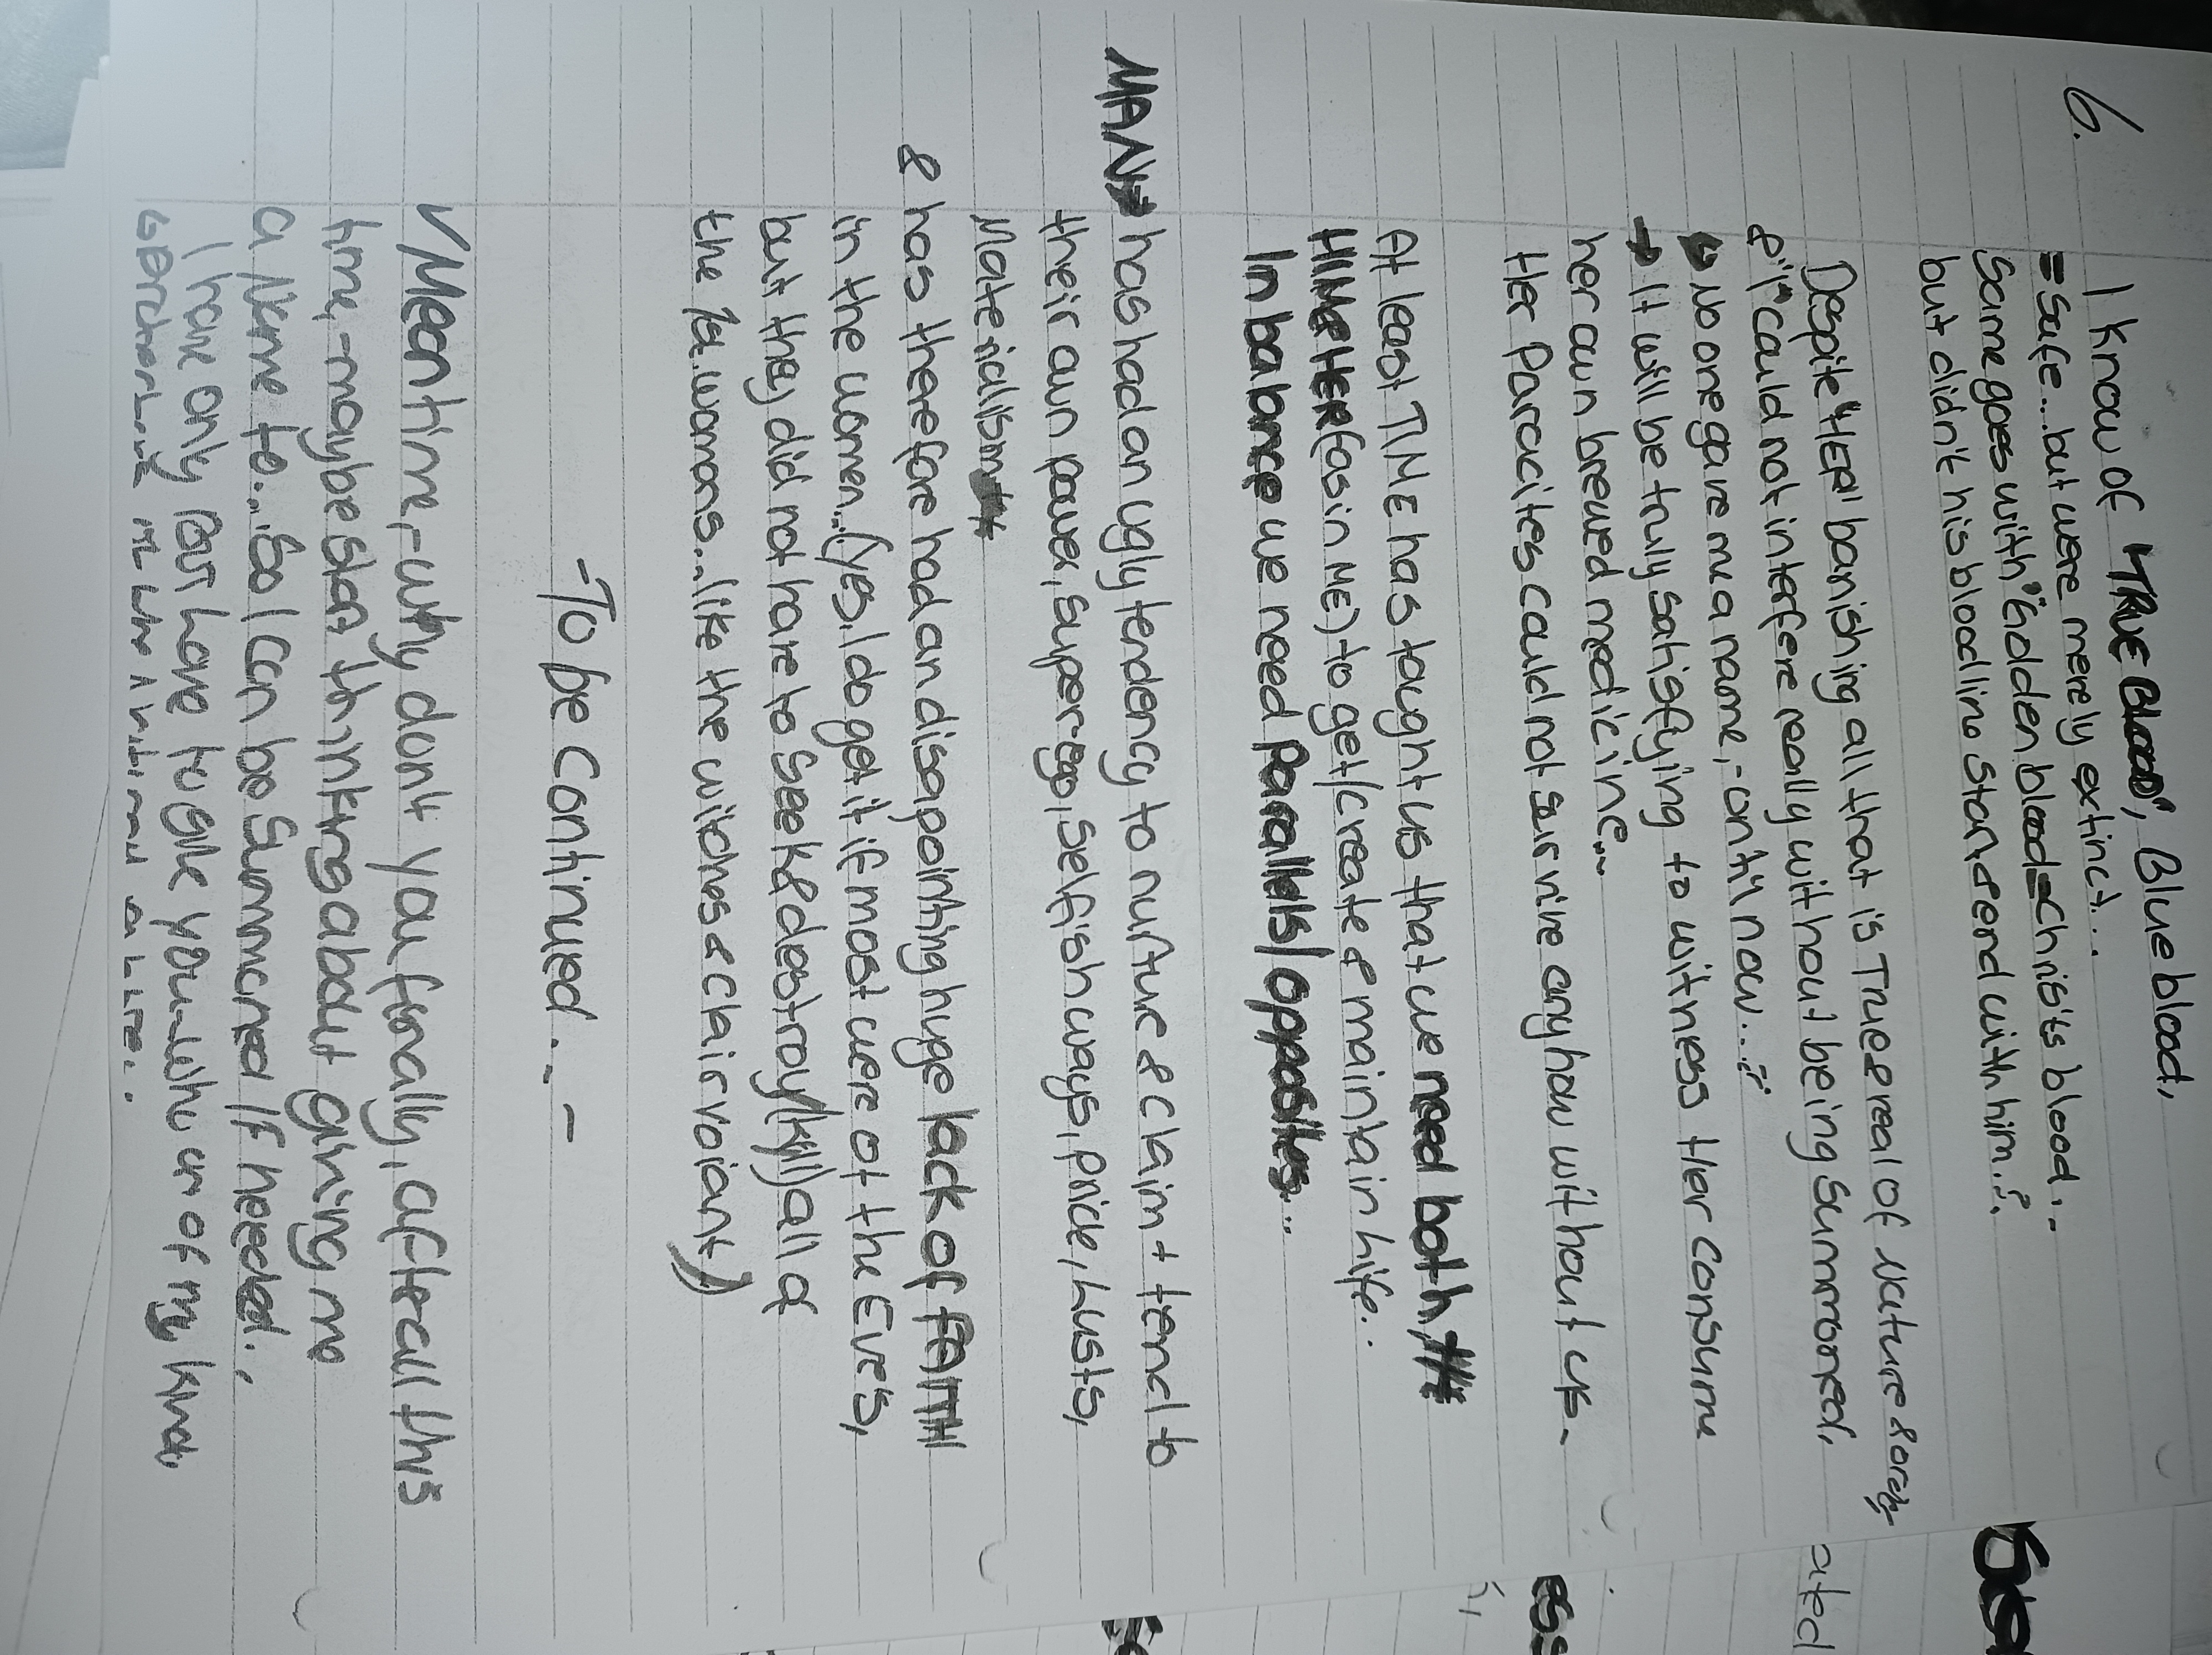 6. I know of "TRUE Blood", Blue blood,
= safe... but were merely extinct...
Same goes with "Golden blood = Christ's blood...
but didn't his bloodline stand end with him..?
Despite "HER" banishing all that is True & real of Nature &
& "I" could not interfere really without being Summoned,
↳ No one gave me a name, - ontil now...
→ It will be truly satisfying to witness Her Consume
her own brewed medicine...
Her Paracites could not survine anyhow without us -
At least TIME has taught us that we need both,
HIM & HER (as in ME) to get/create & maintain Life...
In balance we need Parallels/Opposites...
MAN → has had an ugly tendency to nurture & claim + tend to
their own power, super ego, selfish ways, pride, Lusts,
Materialism
& has therefore had an disappointing huge lack of FAITH
in the women... (yes, I do get it if most were of the EVE's,
but they did not have to Seek & destroy (kill) all of
the womans... like the wildness & clairvoiant)
- To be Continued... -
Meentime, - why don't you finally, after all this
time, - maybe start thinking about giving me
a Name to... So I can be Summoned IF needed..,
I have only ever have to give you - who un of my kind,